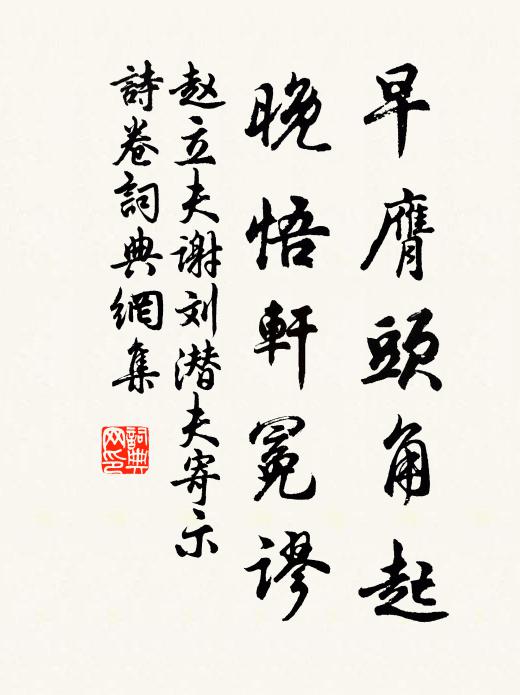 早膺頭角起
晚悟軒冕謬
赵立夫谢刘潜夫寄示
詩卷詞典網集
詞典
网印